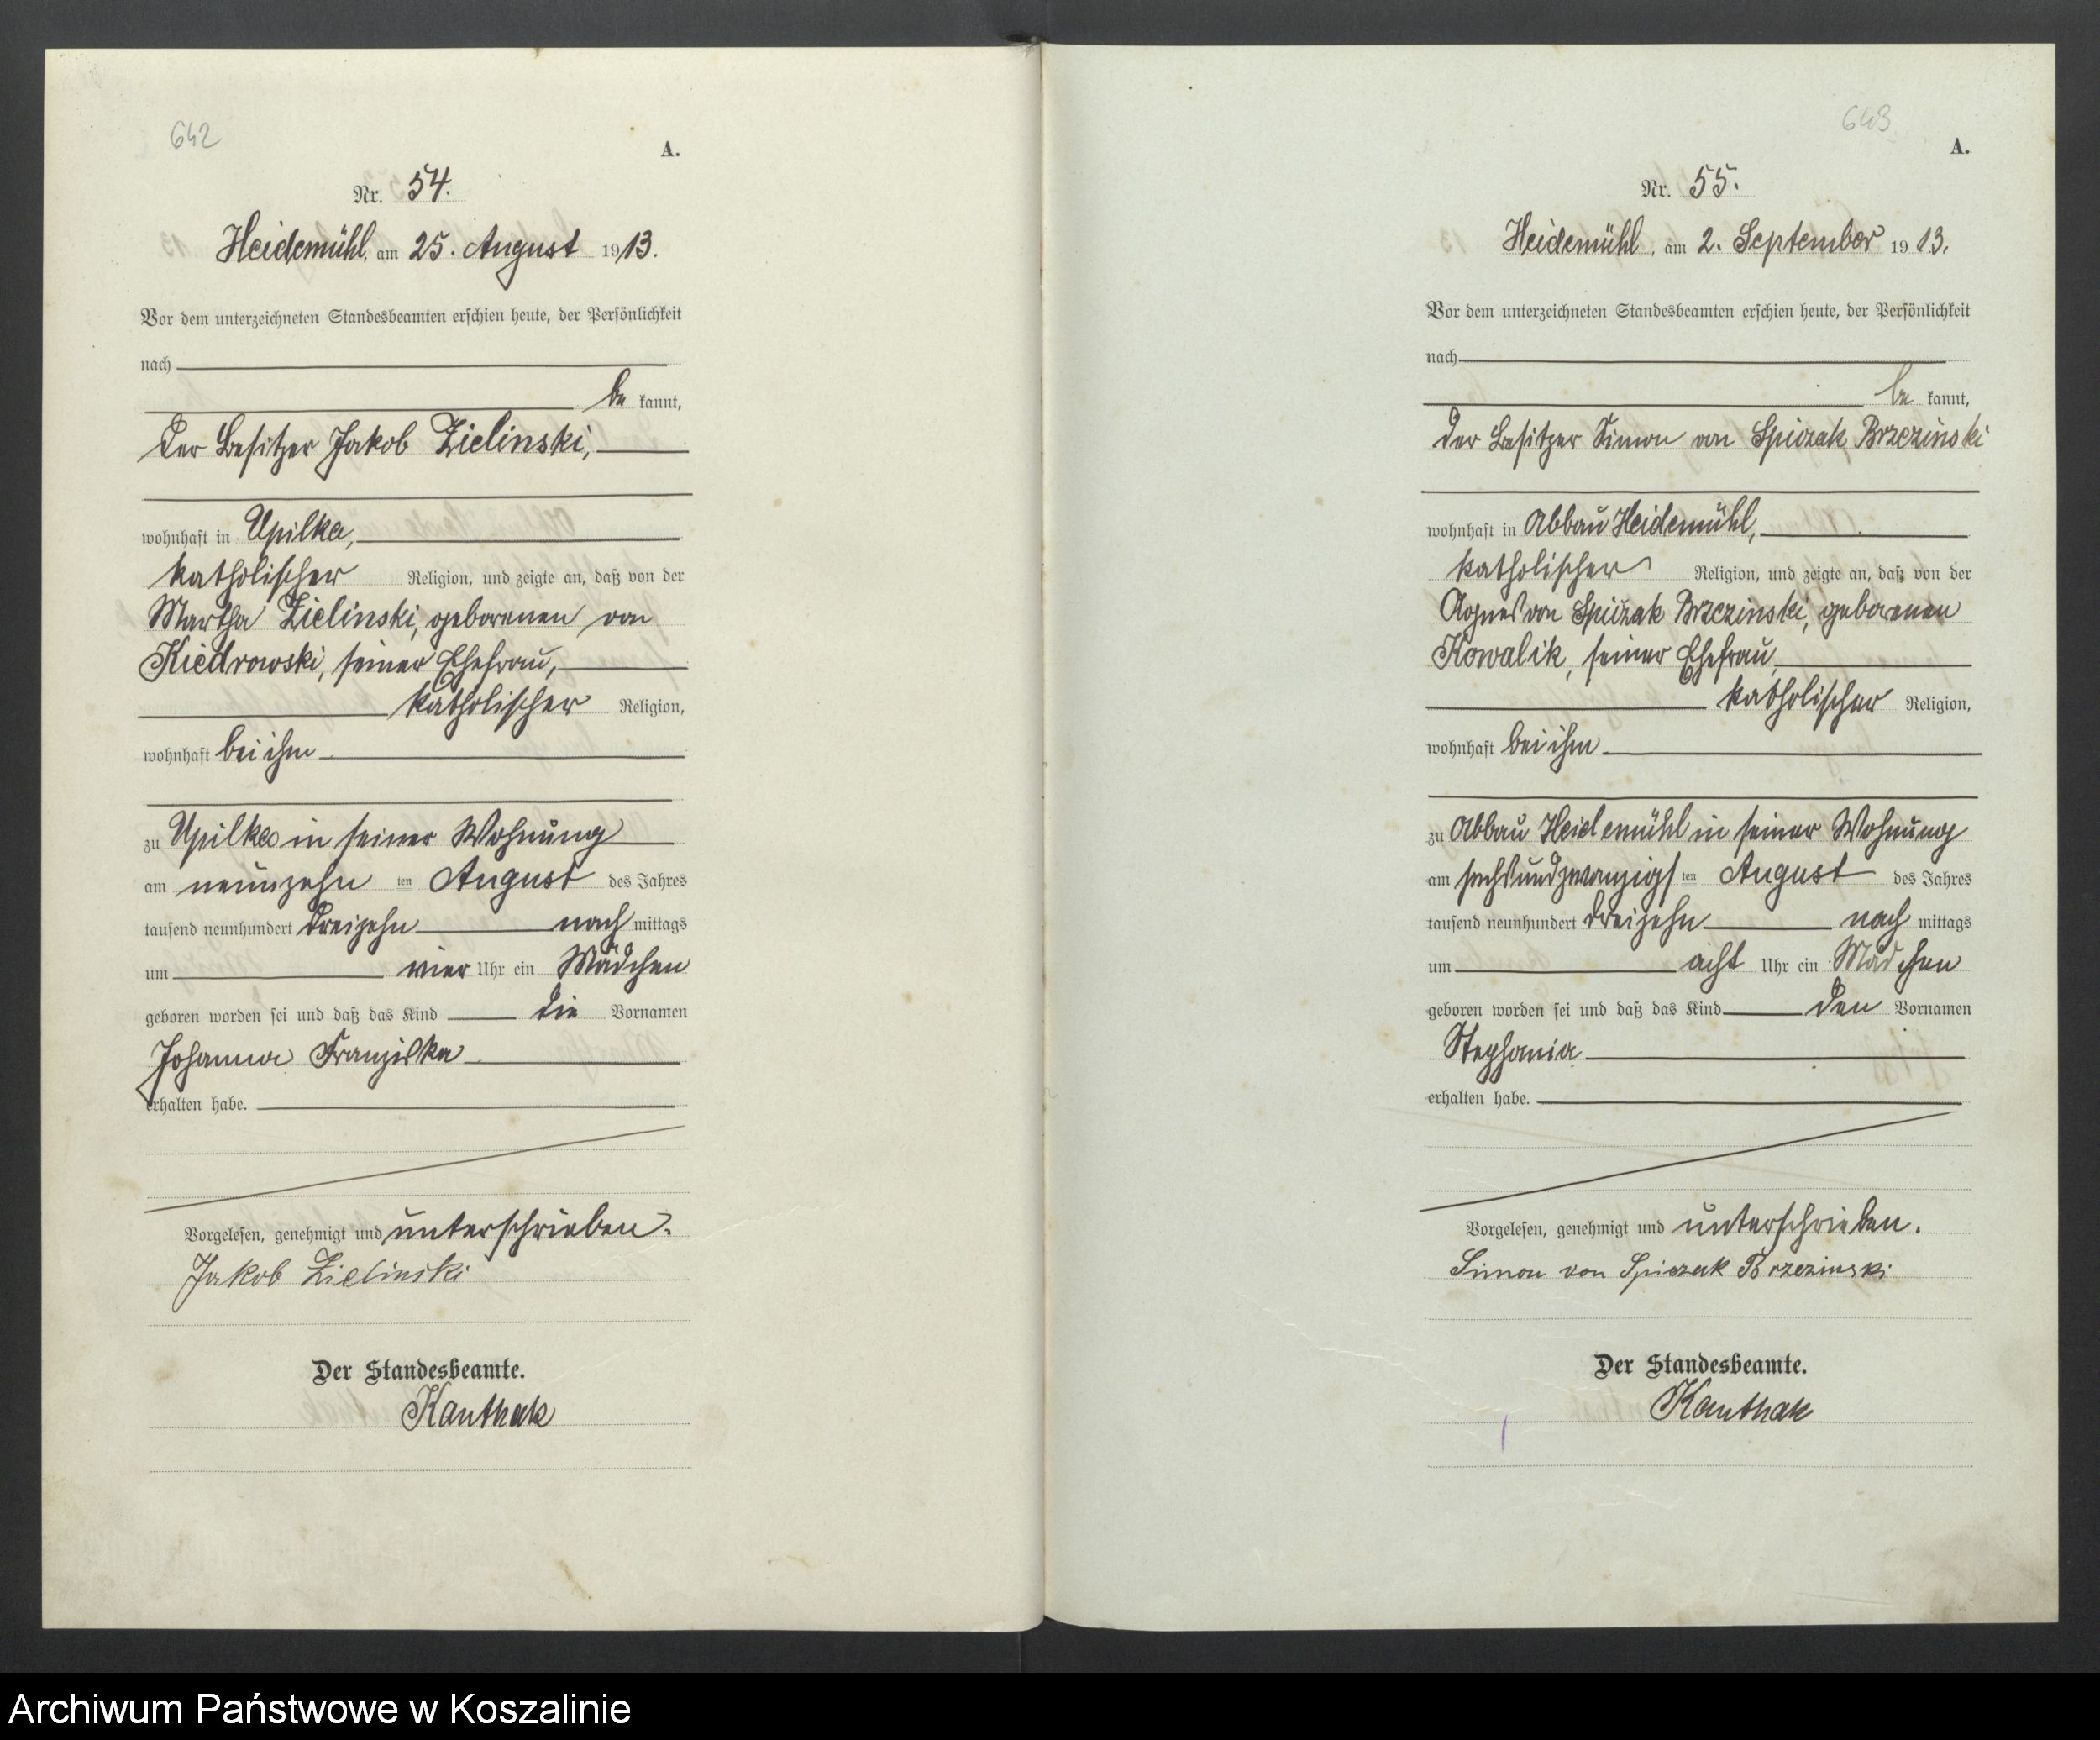 642
A.
Nr. 54.
Heidemühl, am 25. August 1913.
Vor dem unterzeichneten Standesbeamten erschien heute, der Persönlichkeit
nach
be kannt,
der Besitzer Jakob Zielinski,
wohnhaft in Upilka,
katholischer Religion, und zeigte an, daß von der
Martha Zielinski, geborenen von
Kiedrowski, seiner Ehefrau,
katholischer Religion,
wohnhaft bei ihm
zu Upilka in seiner Wohnung
am neunzehn ten August des Jahres
tausend neunhundert dreizehn nach mittags
um vier Uhr ein Mädchen
geboren worden sei und daß das Kind die Vornamen
Johanna Franziska
erhalten habe.
Vorgelesen, genehmigt und unterschrieben.
Jakob Zielinski
Der Standesbeamte.
Kanthak
643
A.
Nr. 55.
Heidemühl, am 2. September 1913.
Vor dem unterzeichneten Standesbeamten erschien heute, der Persönlichkeit
nach
be kannt,
der Besitzer Simon von Spiczak Brzezinski
wohnhaft in Abbau Heidemühl,
katholischer Religion, und zeigte an, daß von der
Agnes von Spiczak Brzezinski, geborenen
Kowalik, seiner Ehefrau,
katholischer Religion,
wohnhaft bei ihm
zu Abbau Heidemühl in seiner Wohnung
am sechsundzwanzigs ten August des Jahres
tausend neunhundert dreizehn nach mittags
um acht Uhr ein Mädchen
geboren worden sei und daß das Kind den Vornamen
Stephania
erhalten habe.
Vorgelesen, genehmigt und unterschrieben.
Simon von Spiczak Brzezinski
Der Standesbeamte.
Kanthak
Archiwum Państwowe w Koszalinie